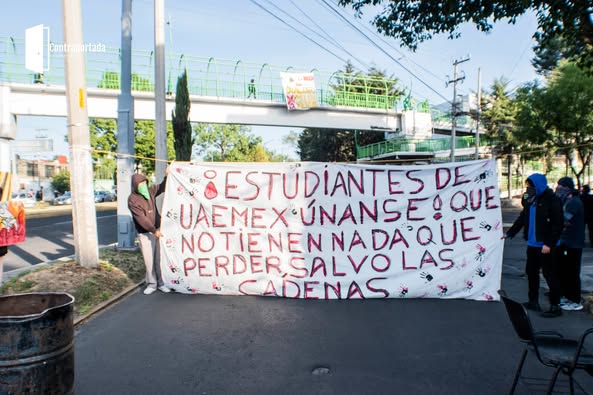 Contraportada
¡ESTUDIANTES DE
UAEMEX ÚNANSE! QUE
NO TIENEN NADA QUE
PERDER SALVO LAS
CADENAS